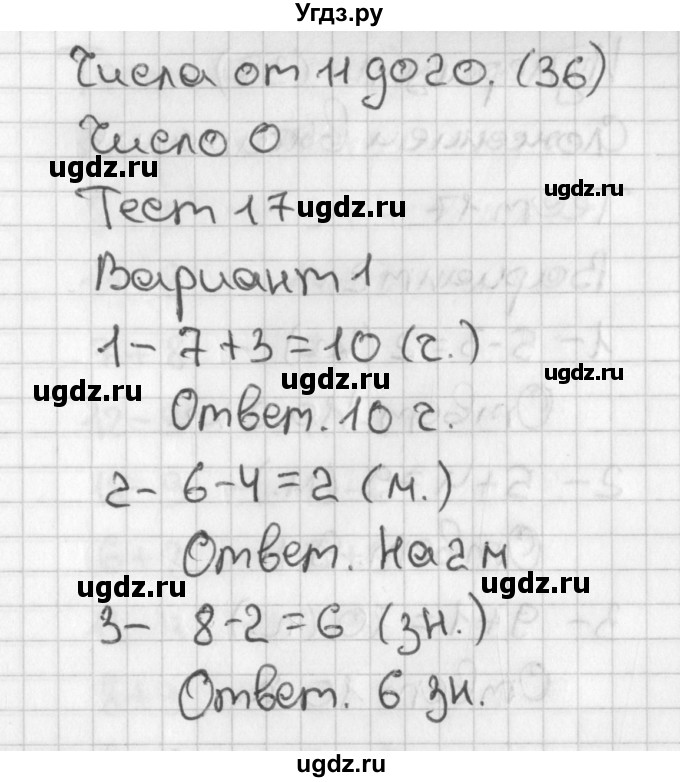 Угдз.ру
Числа от 11 до 20. (36)
Число 0
ugdz.ru
ugdz.ru
Тест 17 ugdz.ru
Вариант 1
1- 7+3=10 (г.)
ugdz.ru
ugdz.ru
ugdz.ru
Ответ. 10 г.
2- 6-4=2 (м.)
Ответ. На 2 м
ugdz.ru
ugdz.ru
3- 8-2=6 (зн.)
Ответ. 6 зн.
ugdz.ru